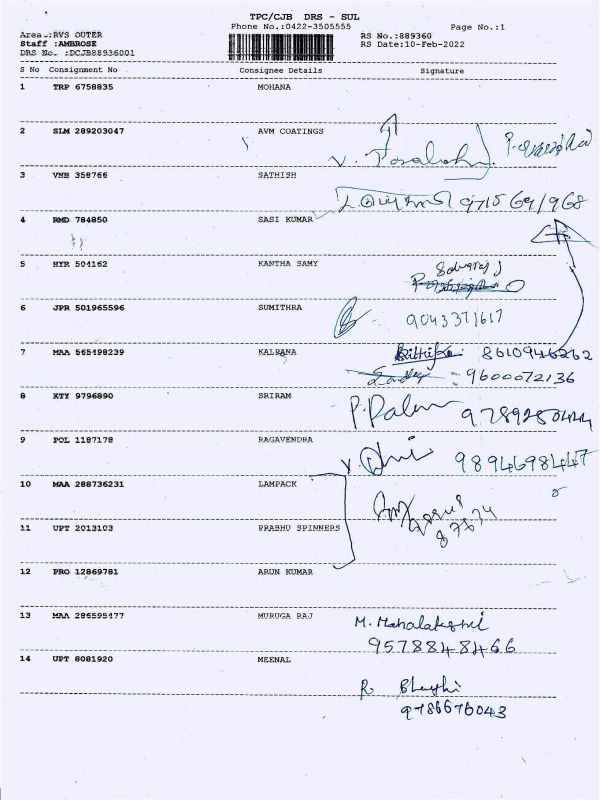 TPC/CJB DRS - SUL
Phone No.:0422-3505555 Page No.:1
Area :RVS OUTER RS No.:889360
Staff :AMBROSE RS Date:10-Feb-2022
DRS No. :DCJB88936001
S No Consignment No Consignee Details Signature
1 TRP 6758835 MOHANA
2 SLM 289203047 AVM COATINGS
3 VNB 358766 SATHISH
4 RMD 784850 SASI KUMAR
5 HYR 504162 KANTHA SAMY
6 JPR 501965596 SUMITHRA 9043371617
7 MAA 565498239 KALPANA 8610946262
9600072136
8 KTY 9796890 SRIRAM
9 POL 1187178 RAGAVENDRA 9894698447
10 MAA 288736231 LAMPACK
11 UPT 2013103 PRABHU SPINNERS
12 PRO 12869781 ARUN KUMAR
13 MAA 286595477 MURUGA RAJ M. Mahalakshmi
9578848466
14 UPT 8081920 MEENAL
R
9786676043